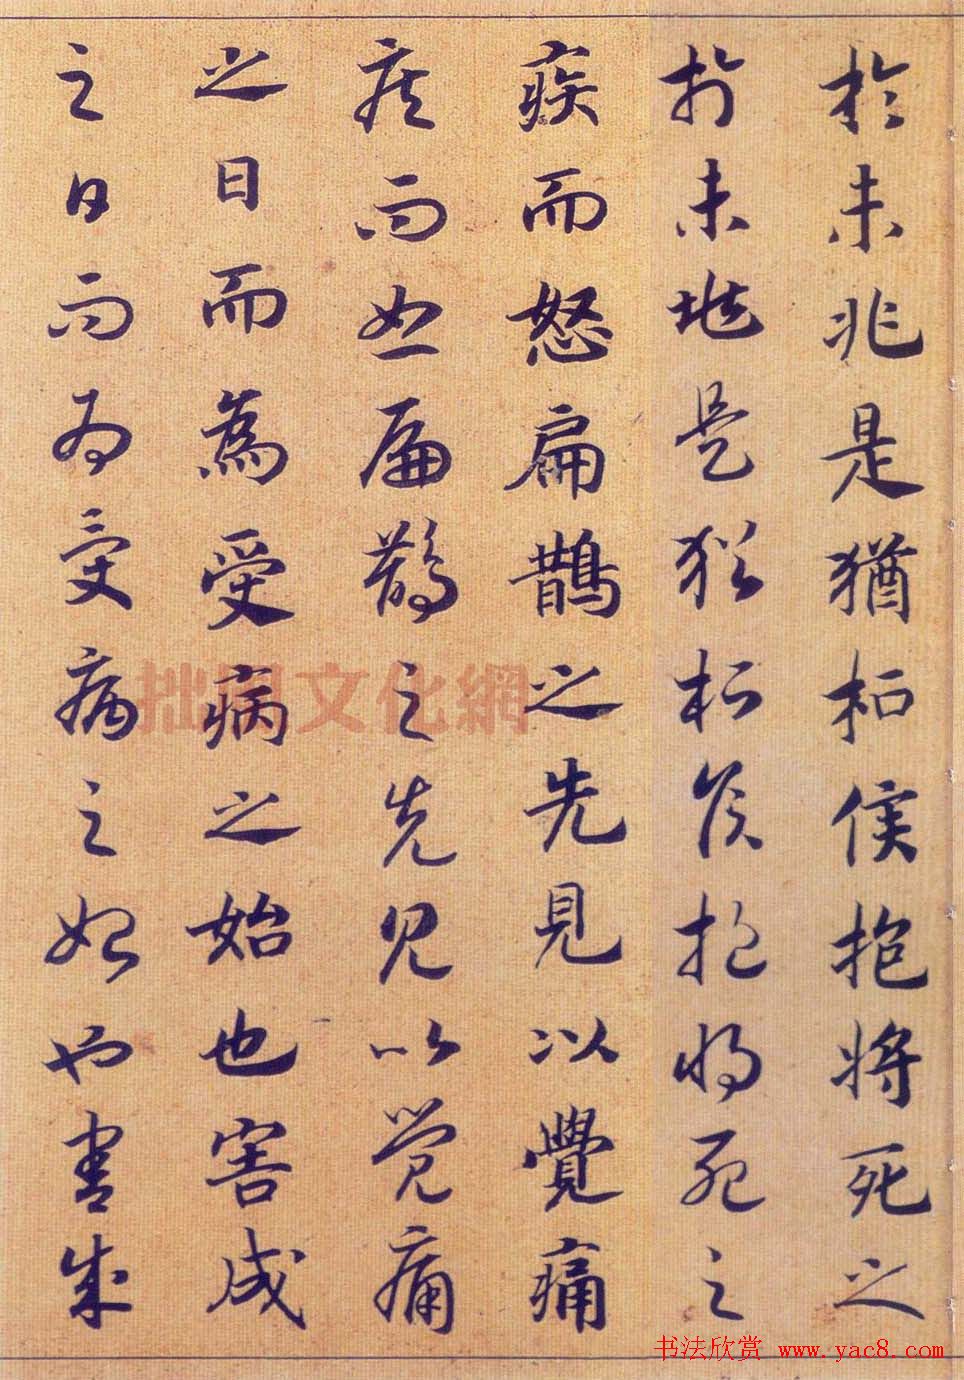 於未兆是猶桓侯抱將死之
於未兆是猶桓侯抱將死之
疾而怒扁鵲之先見以覺痛
疾而怒扁鵲之先見以覺痛
之日而為受病之始也害成
之日而為受病之始也害成
拙風文化網
书法欣赏 www.yac8.com